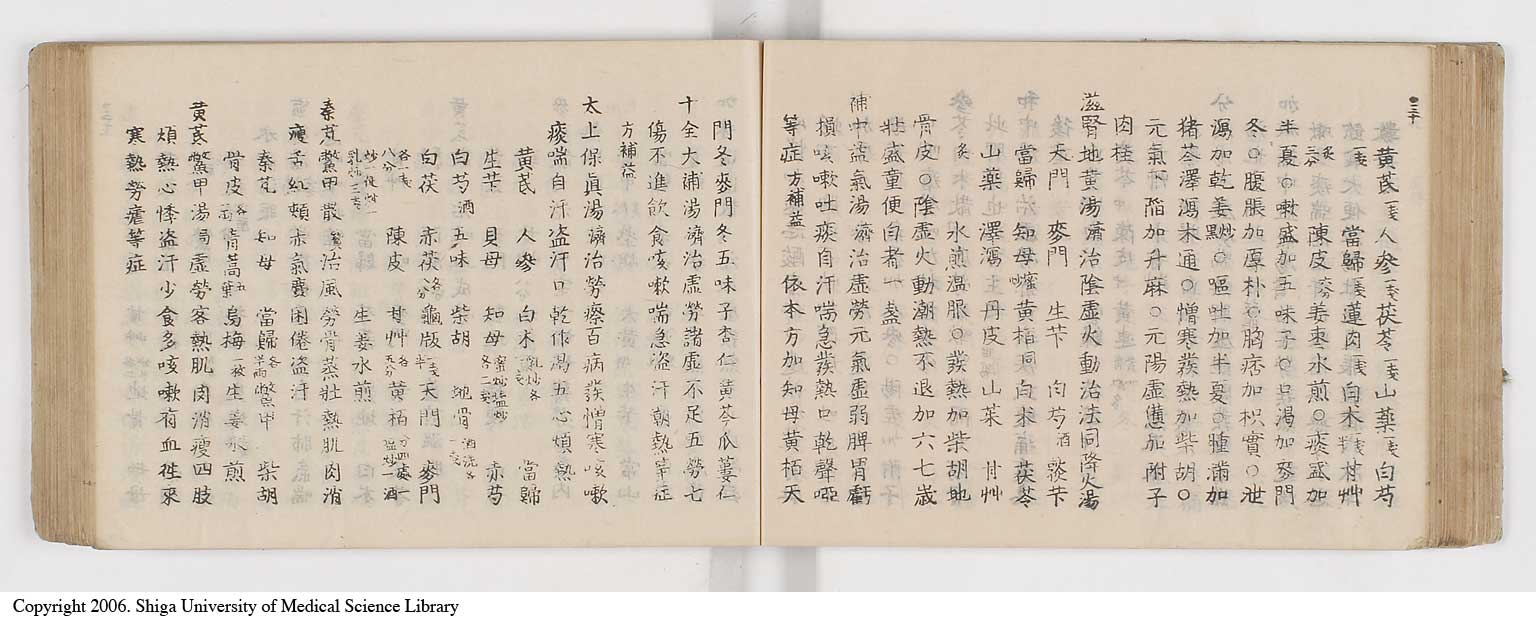 三十
黄芪一戔人參一戔茯苓一戔山藥一戔白芍
一戔當歸一戔蓮肉一戔白朮甘艸
炙三分陳皮姜棗水煎○痰盛加
半夏○嗽盛加五味子○口渇加麥門
冬○腹脹加厚朴○胸痞加枳實○泄
瀉加乾姜炒○嘔吐加半夏○腫滿加
猪苓澤瀉木通○憎寒發熱加柴胡○
元氣下陷加升麻○元陽虚憊加附子
肉桂
滋腎地黄湯 濟治陰虚火動治法同降火湯
天門 麥門 生芐 白芍酒 熟芐
當歸 知母 黄栢 白朮 茯苓
山藥 澤瀉 丹皮 山茱 甘艸
炙 水煎温服○發熱加柴胡地
骨皮○陰虚火動潮熱不退加六七歳
壯盛童便白者一盞
補中益氣湯 濟治虚勞元氣虚弱脾胃虧
損咳嗽吐痰自汗喘急發熱口乾聲啞
等症方補益 依本方加知母黄栢天
門冬麥門冬五味子杏仁黄芩瓜蔞仁
十全大補湯 濟治虚勞諸虚不足五勞七
傷不進飲食咳嗽喘急盗汗朝熱等症
方補益
太上保眞湯 濟治勞瘵百病發憎寒咳嗽
痰喘自汗盗汗口乾作渇五心煩熱
黄芪 人參 白朮 當歸
生芐 貝母 知母 赤芍
白芍酒 五味 柴胡 地骨酒洗各一戔
白茯 赤茯各八分 龜版 天門 麥門
各一戔八分 陳皮 甘艸各五分 黄栢
秦艽鱉甲散 治風勞骨蒸壯熱肌肉消
瘦舌紅頬赤氣麤困倦盗汗
秦艽 知母 當歸各半兩 鱉甲 柴胡
骨皮各一兩 青蒿五葉 烏梅一枚 生姜水煎
黄芪鱉甲湯 局虚勞客熱肌肉消瘦四肢
煩熱心悸盗汗少食多咳嗽有血徃來
寒熱勞瘧等症
Copyright 2006. Shiga University of Medical Science Library